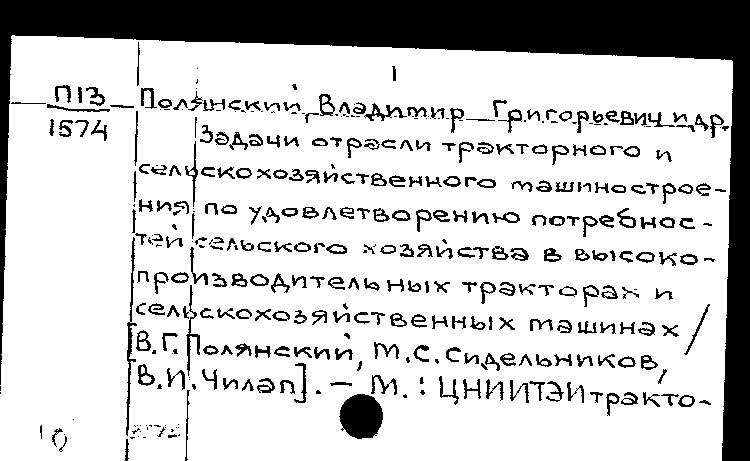 П13 Полянский, Владимир Григорьевич и др.
1574
Задачи отрасли тракторного и
сельскохозяйственного машинострое-
ния по удовлетворению потребнос-
тей сельского хозяйства в высоко-
производительных тракторах и
сельскохозяйственных машинах /
[В.Г. Полянский, М.С. Сидельников,
В.И. Чилап]. – М. : ЦНИИТЭИтракто-